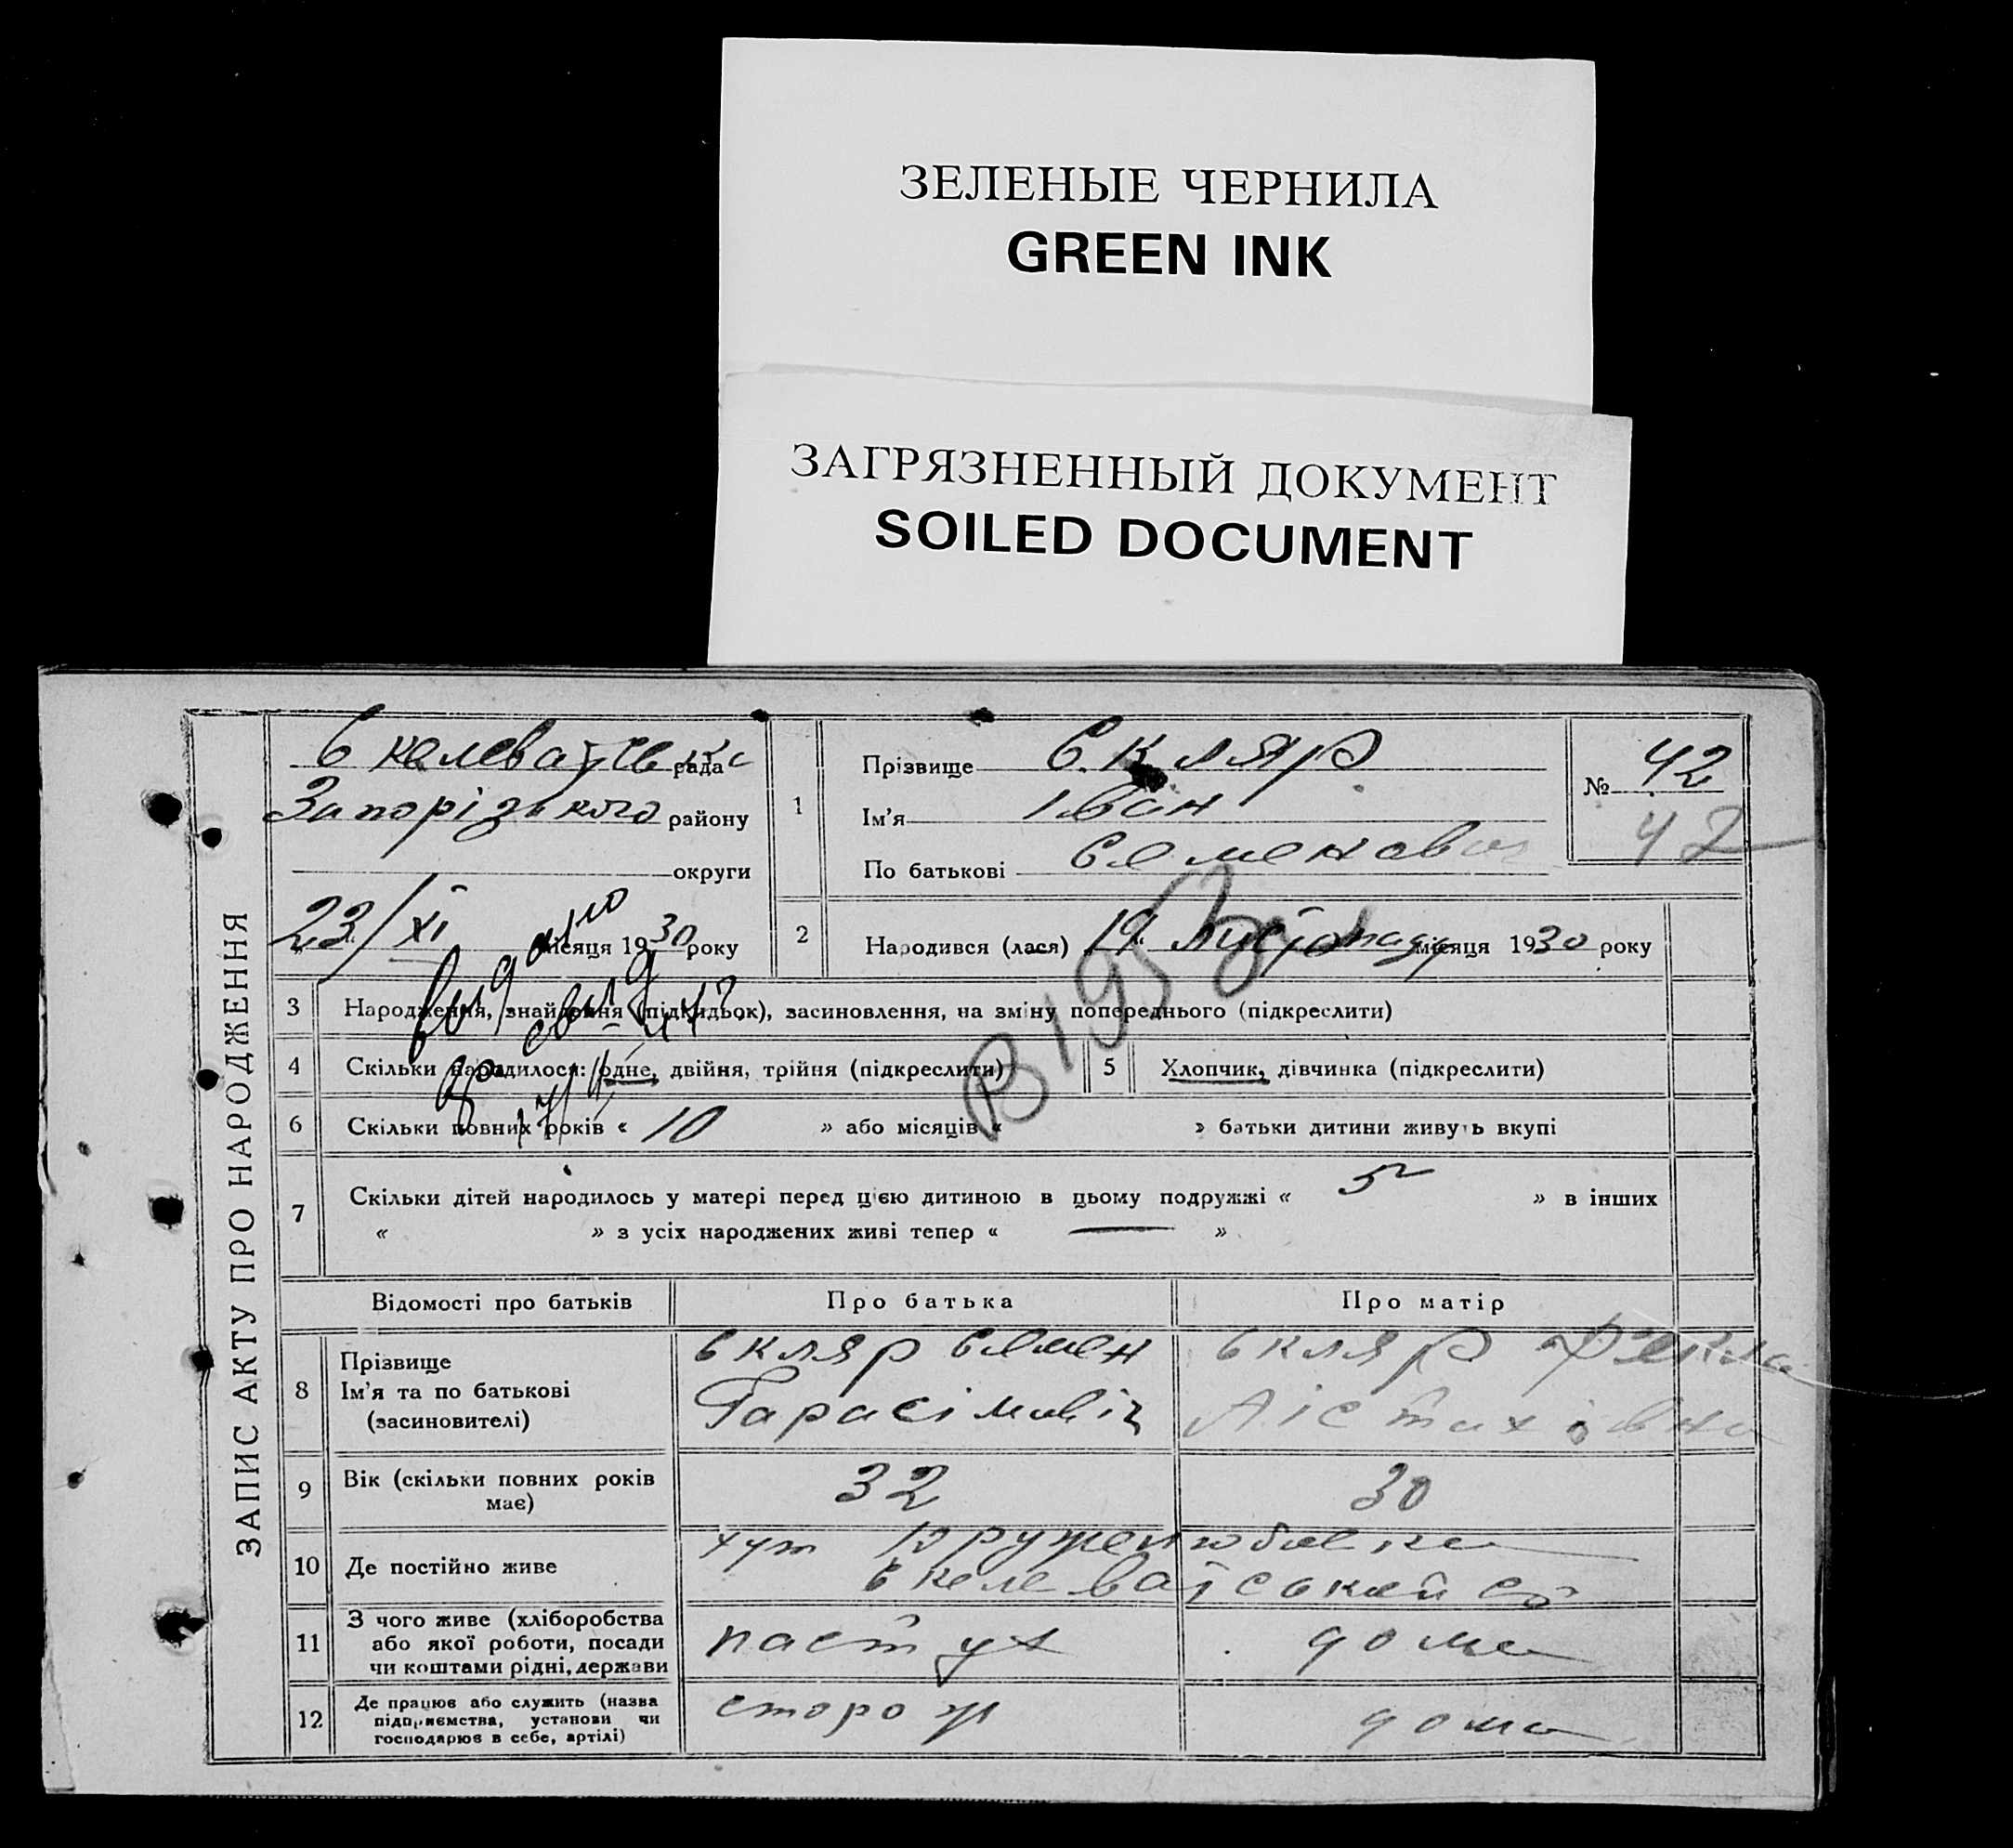 ЗЕЛЕНЫЕ ЧЕРНИЛА
GREEN INK
ЗАГРЯЗНЕННЫЙ ДОКУМЕНТ
SOILED DOCUMENT
ЗАПИС АКТУ ПРО НАРОДЖЕННЯ
рада
Запорізького району
округи
23/XI місяця 1930 року
1
Прізвище Скляр
Ім'я Іван
По батькові Семенович
№ 42
42
2 Народився (лася) „19“ Листопаду місяця 1930 року
3 Народження, знайдення (підкидьок), засиновлення, на зміну попереднього (підкреслити)
4 Скільки народилося: одне, двійня, трійня (підкреслити)
5 Хлопчик, дівчинка (підкреслити)
6 Скільки повних років « 10 » або місяців « » батьки дитини живуть вкупі
7 Скільки дітей народилось у матері перед цією дитиною в цьому подружжі « 5 » в інших
« » з усіх народжених живі тепер « — »
Відомості про батьків Про батька Про матір
8 Прізвище
Ім'я та по батькові
(засиновителі)
Скляр Семен
Гарасімовіч
Скляр Фекла
9 Вік (скільки повних років має) 32 30
10 Де постійно живе
хут
11 З чого живе (хліборобства
або якої роботи, посади
чи коштами рідні, держави
пастух дома
12 Де працює або служить (назва
підприємства, установи чи
господарює в себе, артілі)
сторож дома